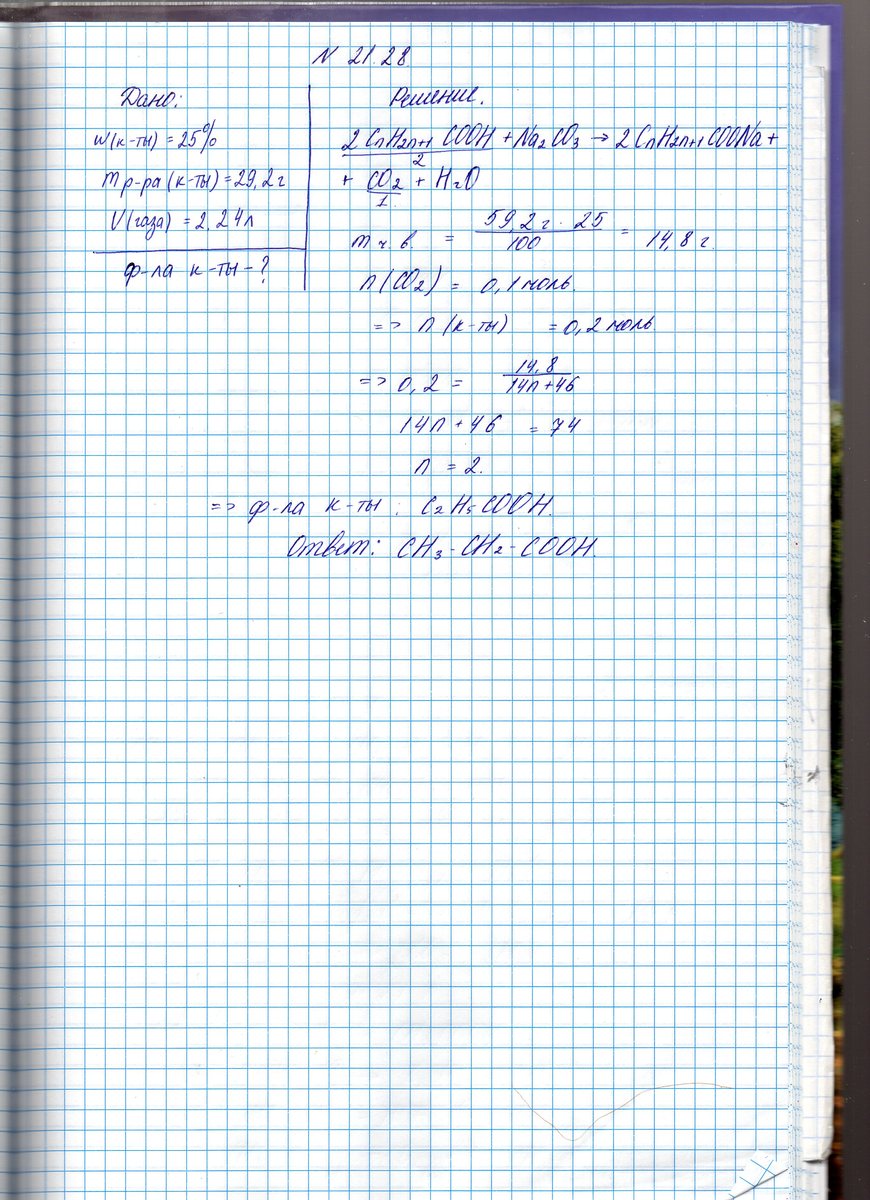 N 21.28.
Дано:
w(к-ты) = 25%
m р-ра (к-ты) = 29,2 г
V(газа) = 2,24 л
ф-ла к-ты - ?
Решение.
2 CnH2n+1 COOH + Na2CO3 → 2 CnH2n+1 COONa +
2
+ CO2 + H2O
1.
m ч.в. = 59,2 г · 25 / 100 = 14,8 г.
n(CO2) = 0,1 моль.
=> n (к-ты) = 0,2 моль
=> 0,2 = 14,8 / 14n+46
14n + 46 = 74
n = 2.
=> ф-ла к-ты : C2H5COOH.
Ответ: CH3 - CH2 - COOH.